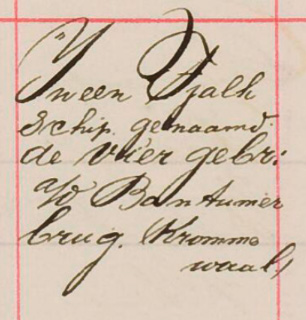 In een Tjalk
schip. genaamd.
de vier gebr:
a/d Bantumer
brug. Kromme
waal,